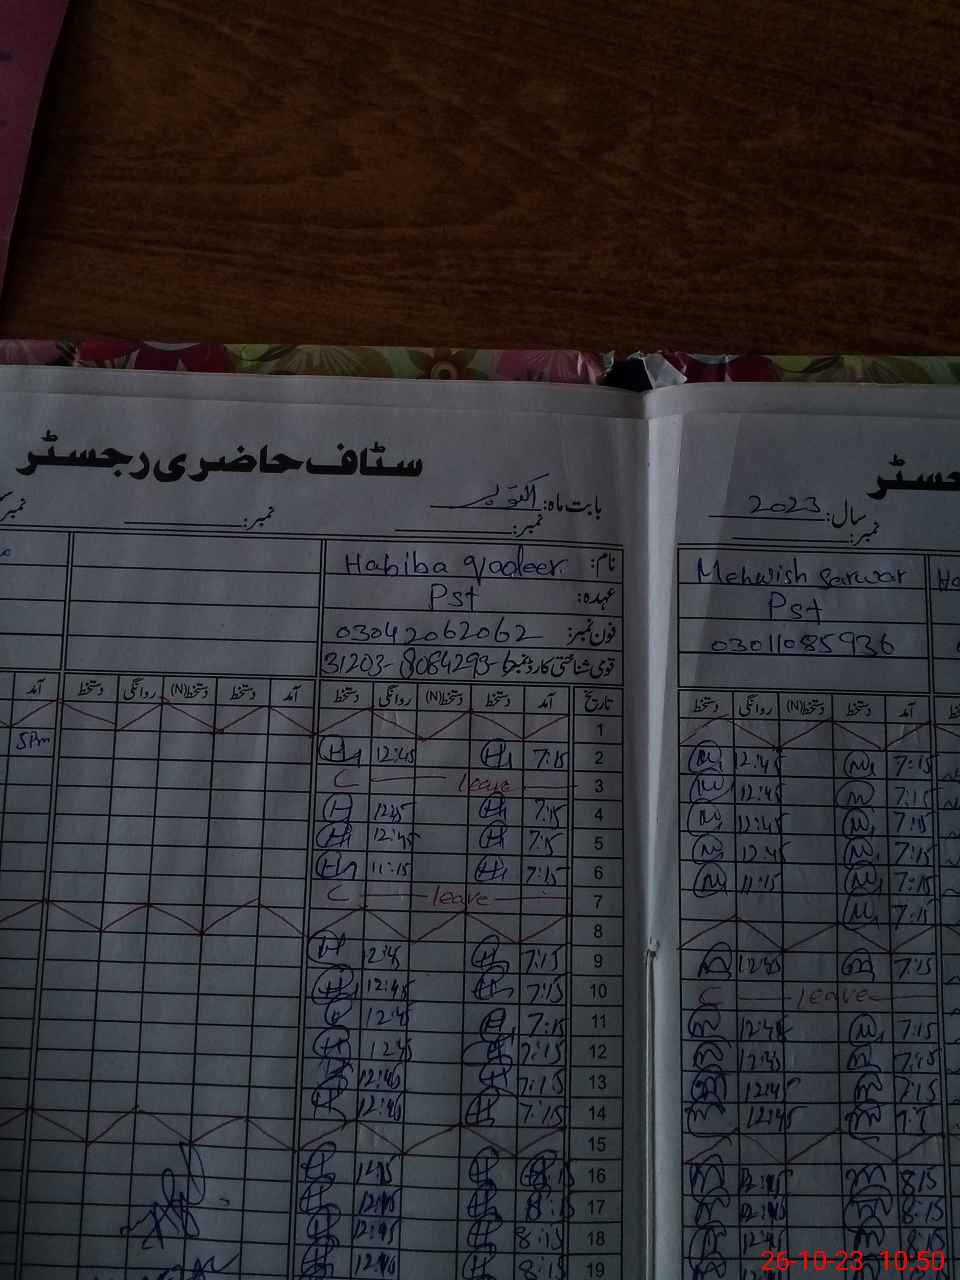 سٹاف حاضری رجسٹر
بابت ماہ: اکتوبر
نمبر: نمبر:
نام: Habiba Qadeer
عہدہ: Pst
فون نمبر: 03042062062
قومی شناختی کارڈ نمبر 31203-8084293-6
تاریخ آمد دستخط دستخط(N) روانگی دستخط آمد دستخط دستخط(N) روانگی دستخط آمد
1
2 7:15 12:45 5pm
3 leave C
4 7:15 12:45
5 7:15 12:45
6 7:15 11:15
7 leave C
8
9 7:15 12:45
10 7:15 12:45
11 7:15 12:45
12 7:15 12:45
13 7:15 12:45
14 7:15 12:45
15
16 8:15 12:45
17 8:15 12:45
18 8:15 12:45
19 8:15 12:45
سال: 2023
نمبر:
Mehwish Sarwar
Pst
03011085936
آمد دستخط دستخط(N) روانگی دستخط
7:15 12:45
7:15 12:45
7:15 12:45
7:15 12:45
7:15 11:15
7:15
7:15 12:45
leave C
7:15 12:45
7:15 12:45
7:15 12:45
12:45
8:15 12:45
8:15 12:45
8:15 12:45
26-10-23 10:50